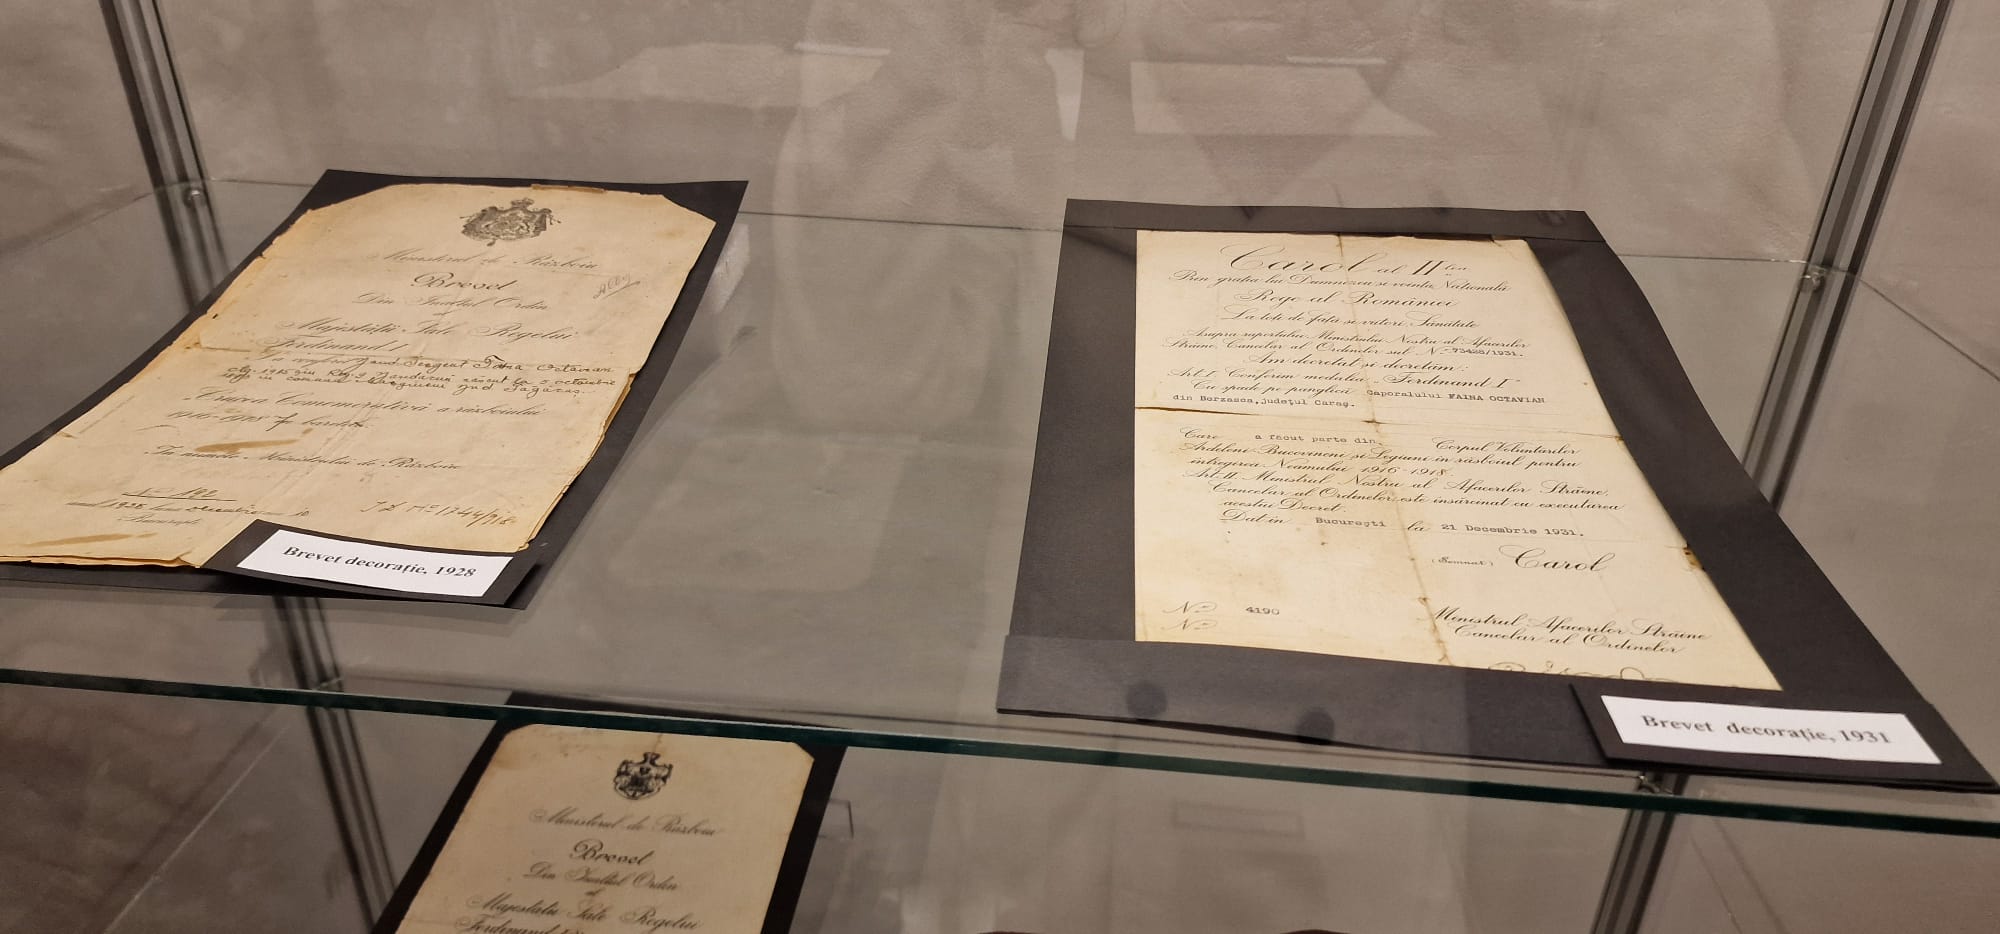 Ministerul de Războiu
Brevet
Din Inaltul Ordin
al
Majestății Sale Regelui
Ferdinand I
Sergent Faina Octavian
Reg. 2 Jandarmi născut la 5 octombrie
in comuna Jud Făgăraș.
Crucea Comemorativă a răsboiului
1916-1918
In numele Ministrului de Războiu
No 192
București
Brevet decorație, 1928
Carol al II lea
Prin grația lui Dumnezeu și voința Națională
Rege al României
La toți de față și viitori Sănătate
Asupra raportului Ministrului Nostru al Afacerilor
Străine, Cancelar al Ordinelor sub No 73428/1931.
Am decretat și decretăm:
Art. I. Conferim medalia "Ferdinand I"
Cu spade pe panglică caporalului FAINA OCTAVIAN
din Berzasca, județul Caraș.
Care a făcut parte din Corpul Voluntarilor
Ardeleni Bucovineni și Legiuni în răsboiul pentru
întregirea Neamului 1916-1918.
Art. II. Ministrul Nostru al Afacerilor Străine,
Cancelar al Ordinelor, este însărcinat cu executarea
acestui Decret.
Dat în București la 21 Decembrie 1931.
(Semnat) Carol
No 4190
No
Ministrul Afacerilor Străine
Cancelar al Ordinelor
Brevet decorație, 1931
Ministerul de Războiu
Brevet
Din Inaltul Ordin
al
Majestății Sale Regelui
Ferdinand I